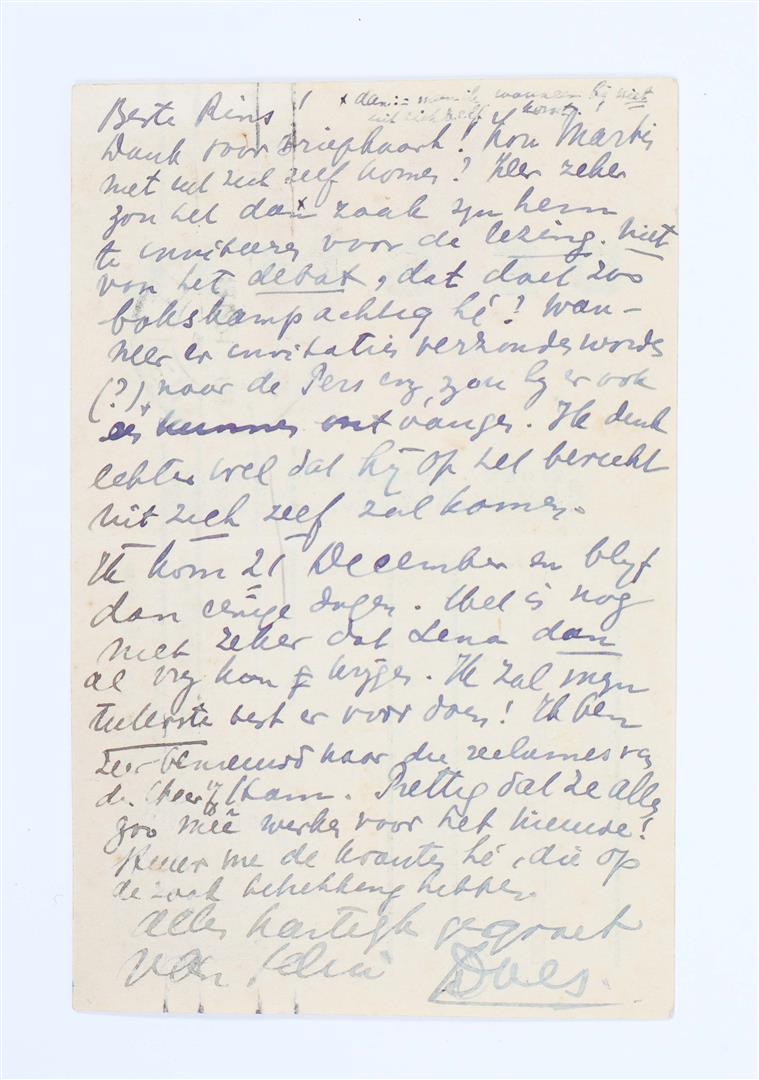 Beste Rins!
x dan := wanneer hij niet
uit zich zelf komt.
Dank voor Briefkaart! Kon Martis
niet uit zich zelf komen? Zeer zeker
zou het dan x zaak zyn hem
te inviteeren voor de lezing. Niet
van het debat, dat doet zoo
bokskampachtig hé? Wan-
neer er invitaties verzonden worden
(?) naar de Pers enz, zou hy er ook
een kunnen ontvangen. Ik denk
echter wel dat hij op het bericht
uit zich zelf zal komen.
Ik kom 21 December en blyf
dan eenige dagen. Het is nog
niet zeker dat Lena dan
al vry kan krygen. Ik zal myn
uiterste best er voor doen! Ik ben
zeer benieuwd naar die reclames van
de Kam. Prettig dat ze allen
zoo meê werken voor het nieuwe!
Stuur me de kranten hé, die op
de zaak betrekking hebben.
Allen hartelyk gegroet
van Does